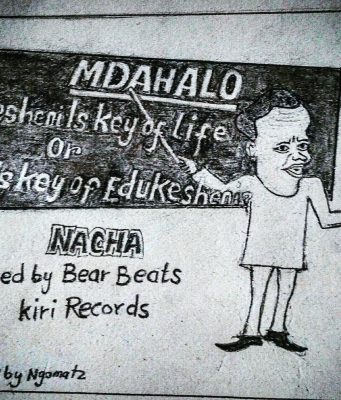 MDAHALO
esheni Is key of life
Or
s key of Edukesheni
NACHA
ed by Bear Beats
kiri Records
by Ngomatz